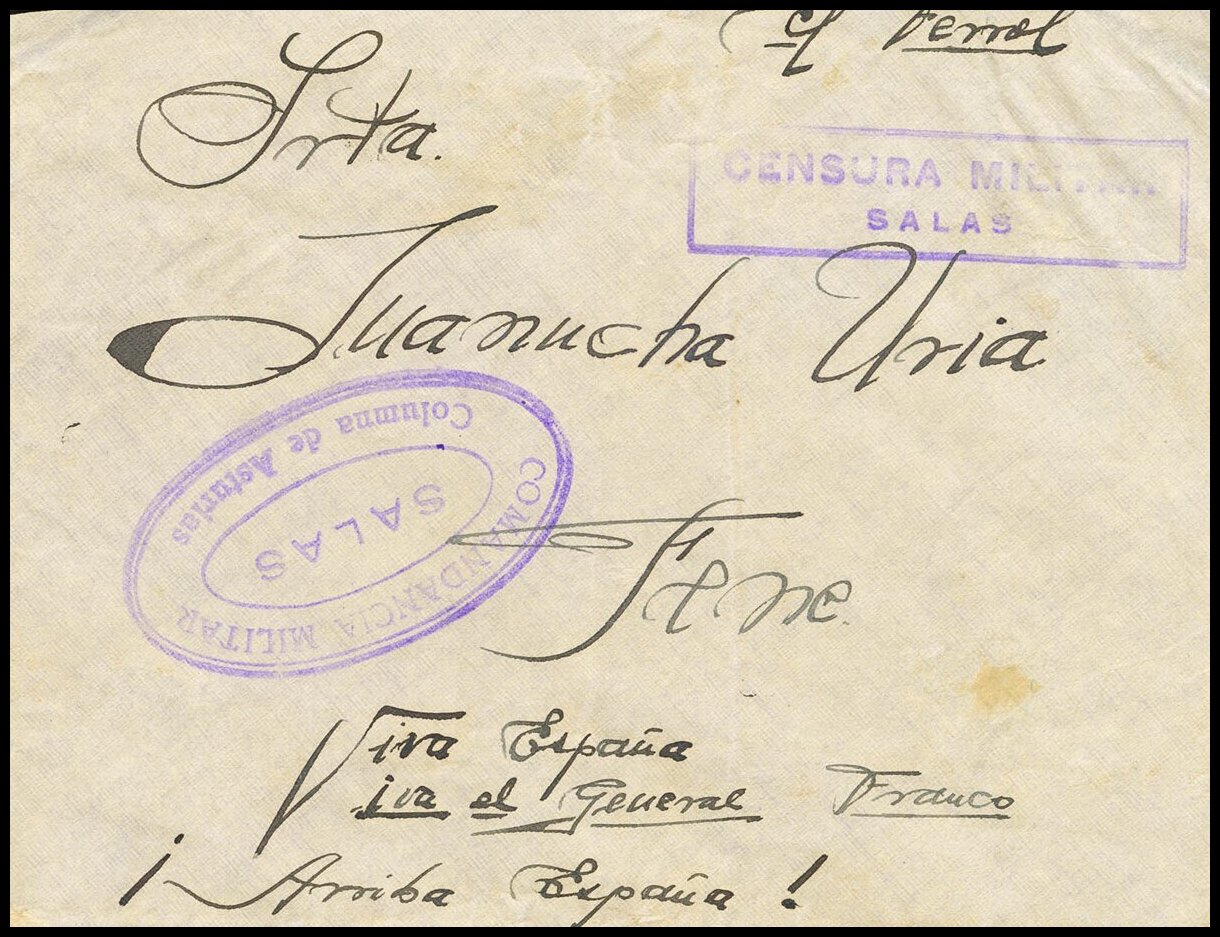 El Ferrol
Srta.
CENSURA MILITAR
SALAS
Juanucha Uria
Columna de Asturias
SALAS
COMANDANCIA MILITAR
Fene.
Viva España
Viva el General Franco
¡Arriba España!